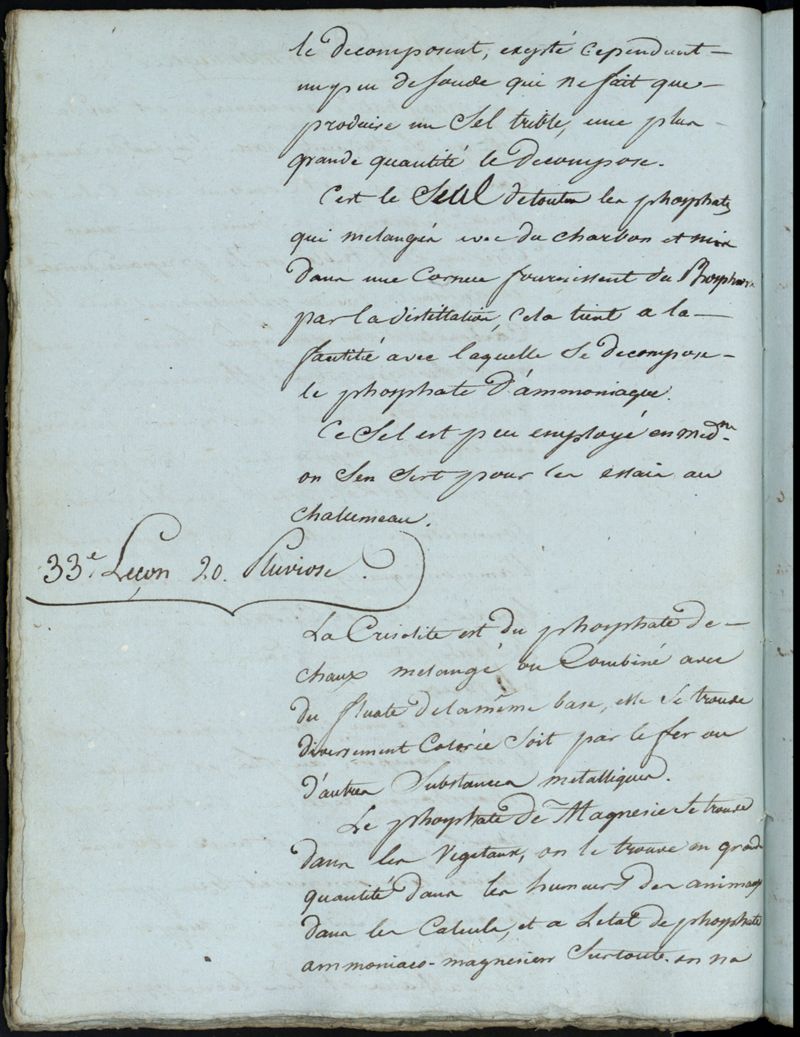 le decomposent, exepté cependant
un peu de soude qui ne fait que
produire un Sel trible, une plus
grande quantité le decompose.
C'est le Seul de toutes les phosphates
qui melangés avec du charbon et mis
dans une Cornue fournissent du Phosphore
par la distillation, cela tient a la
facilité avec laquelle Se decompose
le phosphate d'ammoniaque.
Ce Sel est peu employé en med.ne
on Sen Sert pour les essais au
chalumeau.
33.e Leçon 20. Pluviose.
La Crisolite est du phosphate de
chaux melangé ou Combiné avec
du fluate de la même base, elle Se trouve
diversement Colorée Soit par le fer ou
d'autres Substances metalliques.
Le phosphate de Magnesie Se trouve
dans les Vegetaux, on le trouve en grande
quantité dans les humeurs des animaux
dans les Calculs, et a Letat de phosphate
ammoniaco-magnesien Surtout. on na